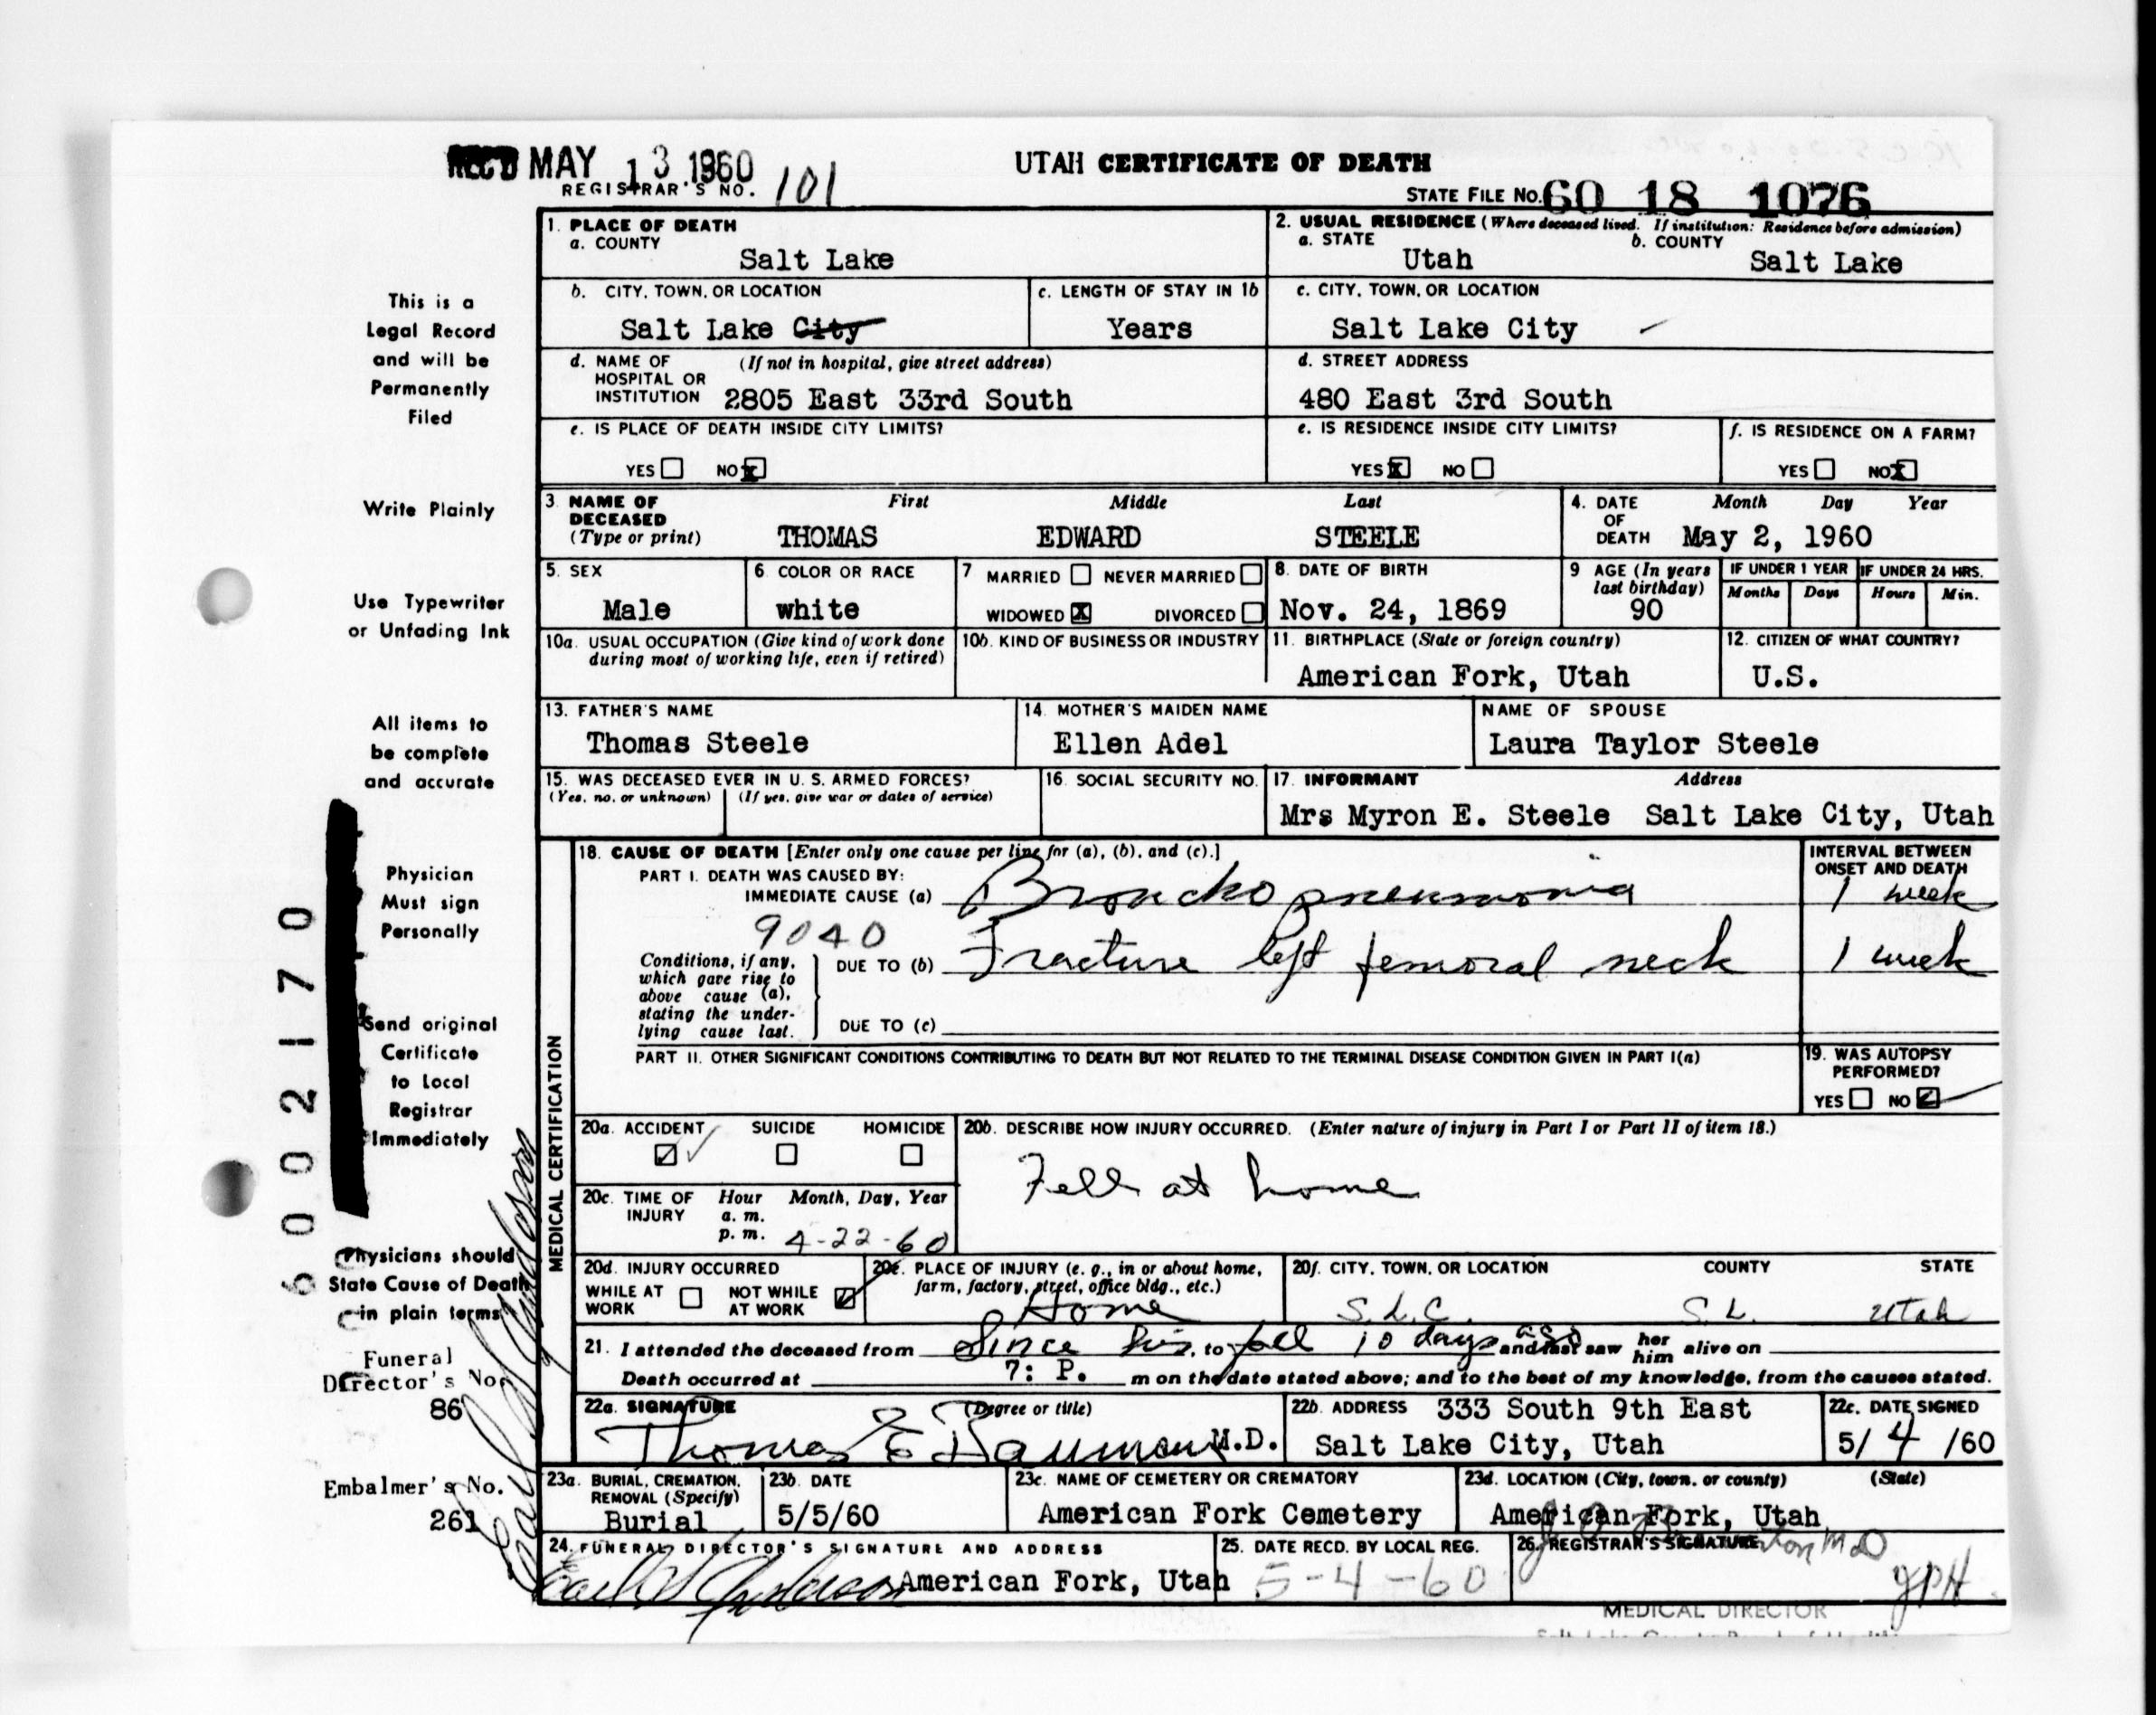 REC'D MAY 13 1960
REGISTRAR'S NO. 101
UTAH CERTIFICATE OF DEATH
STATE FILE NO. 60 18 1076
This is a
Legal Record
and will be
Permanently
Filed
Write Plainly
Use Typewriter
or Unfading Ink
All items to
be complete
and accurate
Physician
Must sign
Personally
Send original
Certificate
to Local
Registrar
Immediately
Physicians should
State Cause of Death
in plain terms
Funeral
Director's No.
86
Embalmer's No.
261
6002170
1. PLACE OF DEATH
a. COUNTY
Salt Lake
2. USUAL RESIDENCE (Where deceased lived. If institution: Residence before admission)
a. STATE
Utah
b. COUNTY
Salt Lake
b. CITY, TOWN, OR LOCATION
Salt Lake City
c. LENGTH OF STAY IN 1b
Years
c. CITY, TOWN, OR LOCATION
Salt Lake City
d. NAME OF HOSPITAL OR INSTITUTION (If not in hospital, give street address)
2805 East 33rd South
d. STREET ADDRESS
480 East 3rd South
e. IS PLACE OF DEATH INSIDE CITY LIMITS?
YES NO X
e. IS RESIDENCE INSIDE CITY LIMITS?
YES X NO
f. IS RESIDENCE ON A FARM?
YES NO X
3. NAME OF DECEASED (Type or print)
First Middle Last
THOMAS EDWARD STEELE
4. DATE OF DEATH Month Day Year
May 2, 1960
5. SEX
Male
6. COLOR OR RACE
white
7 MARRIED NEVER MARRIED
WIDOWED X DIVORCED
8. DATE OF BIRTH
Nov. 24, 1869
9 AGE (In years last birthday)
90
IF UNDER 1 YEAR
Months Days
IF UNDER 24 HRS.
Hours Min.
10a. USUAL OCCUPATION (Give kind of work done during most of working life, even if retired)
10b. KIND OF BUSINESS OR INDUSTRY
11. BIRTHPLACE (State or foreign country)
American Fork, Utah
12. CITIZEN OF WHAT COUNTRY?
U.S.
13. FATHER'S NAME
Thomas Steele
14. MOTHER'S MAIDEN NAME
Ellen Adel
NAME OF SPOUSE
Laura Taylor Steele
15. WAS DECEASED EVER IN U. S. ARMED FORCES?
(Yes, no, or unknown) (If yes, give war or dates of service)
16. SOCIAL SECURITY NO.
17. INFORMANT Address
Mrs Myron E. Steele Salt Lake City, Utah
MEDICAL CERTIFICATION
18. CAUSE OF DEATH [Enter only one cause per line for (a), (b), and (c).]
PART I. DEATH WAS CAUSED BY:
IMMEDIATE CAUSE (a) Bronchopneumonia
INTERVAL BETWEEN ONSET AND DEATH
1 week
9040
Conditions, if any, which gave rise to above cause (a), stating the underlying cause last.
DUE TO (b) Fracture left femoral neck
1 week
DUE TO (c)
PART II. OTHER SIGNIFICANT CONDITIONS CONTRIBUTING TO DEATH BUT NOT RELATED TO THE TERMINAL DISEASE CONDITION GIVEN IN PART I(a)
19. WAS AUTOPSY PERFORMED?
YES NO
20a. ACCIDENT SUICIDE HOMICIDE
20b. DESCRIBE HOW INJURY OCCURRED. (Enter nature of injury in Part I or Part II of item 18.)
Fell at home
20c. TIME OF INJURY Hour Month, Day, Year
a. m.
p. m. 4-22-60
20d. INJURY OCCURRED
WHILE AT WORK NOT WHILE AT WORK
20e. PLACE OF INJURY (e. g., in or about home, farm, factory, street, office bldg., etc.)
Home
20f. CITY, TOWN, OR LOCATION COUNTY STATE
S.L.C. S.L. Utah
21. I attended the deceased from Since his, to fall 10 days ago and last saw her him alive on
Death occurred at 7: P. m on the date stated above; and to the best of my knowledge, from the causes stated.
22a. SIGNATURE (Degree or title)
Thomas E Bauman M.D.
22b. ADDRESS 333 South 9th East
Salt Lake City, Utah
22c. DATE SIGNED
5/4/60
23a. BURIAL, CREMATION, REMOVAL (Specify)
Burial
23b. DATE
5/5/60
23c. NAME OF CEMETERY OR CREMATORY
American Fork Cemetery
23d. LOCATION (City, town, or county) (State)
American Fork, Utah
24. FUNERAL DIRECTOR'S SIGNATURE AND ADDRESS
Anderson American Fork, Utah
25. DATE RECD. BY LOCAL REG.
5-4-60
26. REGISTRAR'S SIGNATURE
MD
JPH
MEDICAL DIRECTOR